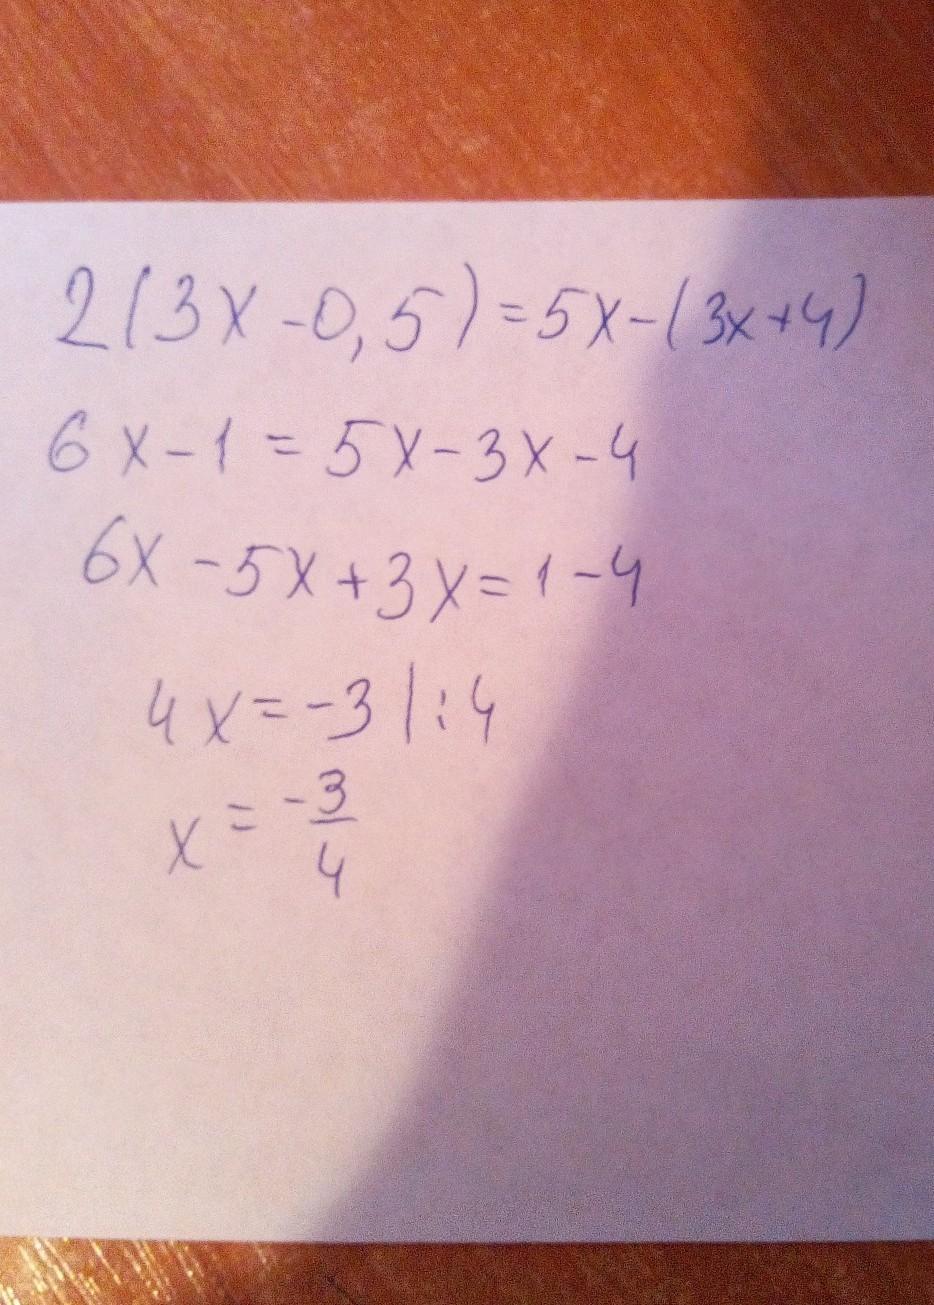 2(3x-0,5)=5x-(3x+4)
6x-1=5x-3x-4
6x-5x+3x=1-4
4x=-3|:4
x=-3/4